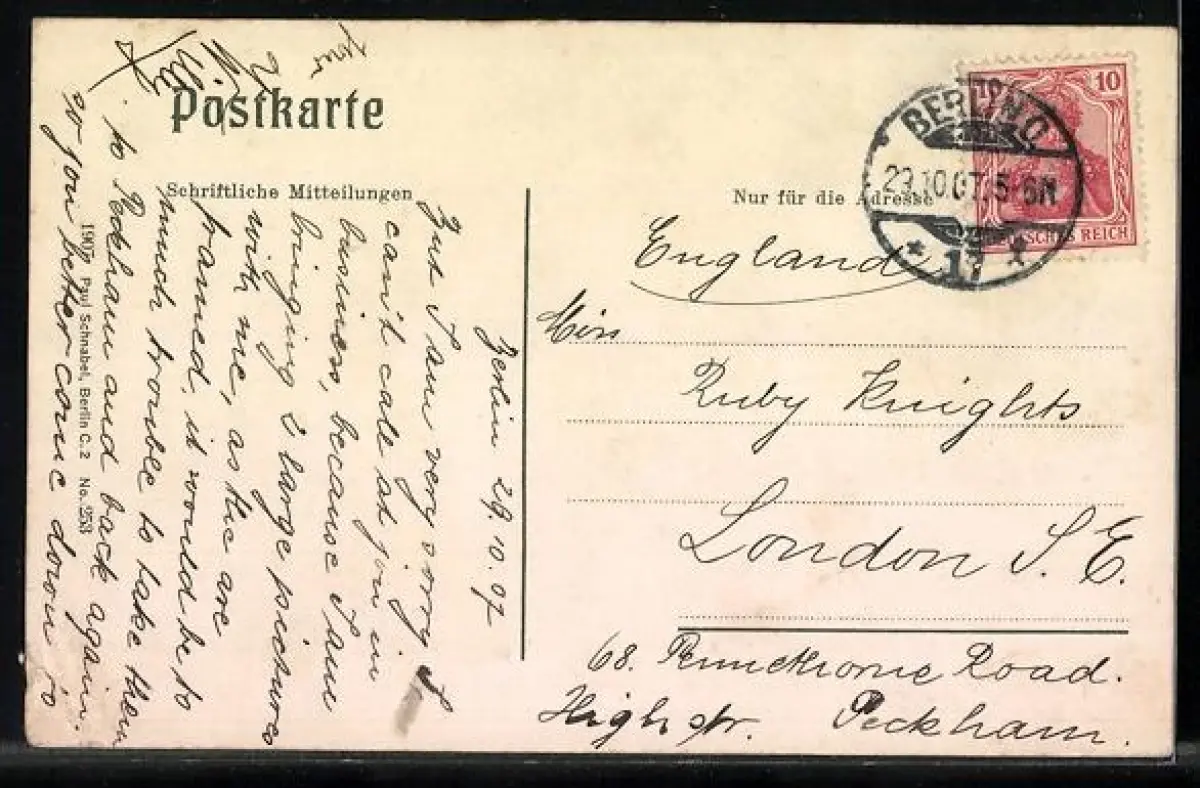 Postkarte
Schriftliche Mitteilungen
Nur für die Adresse
10
DEUTSCHES REICH
BERLIN O
29.10.07. 5-6N
* 17
England
Miss
Ruby Knights
London S. E.
68. Road.
High str. Peckham.
Berlin 29.10.07
But I am very sorry I
can't calle at you in
business, because I am
bringing 2 large pictures
with me, as the are
framed, it would be to
much trouble to take them
to Peckham and back again.
so you better come down to
1907 Paul Schnabel, Berlin C.2 No. 253
your